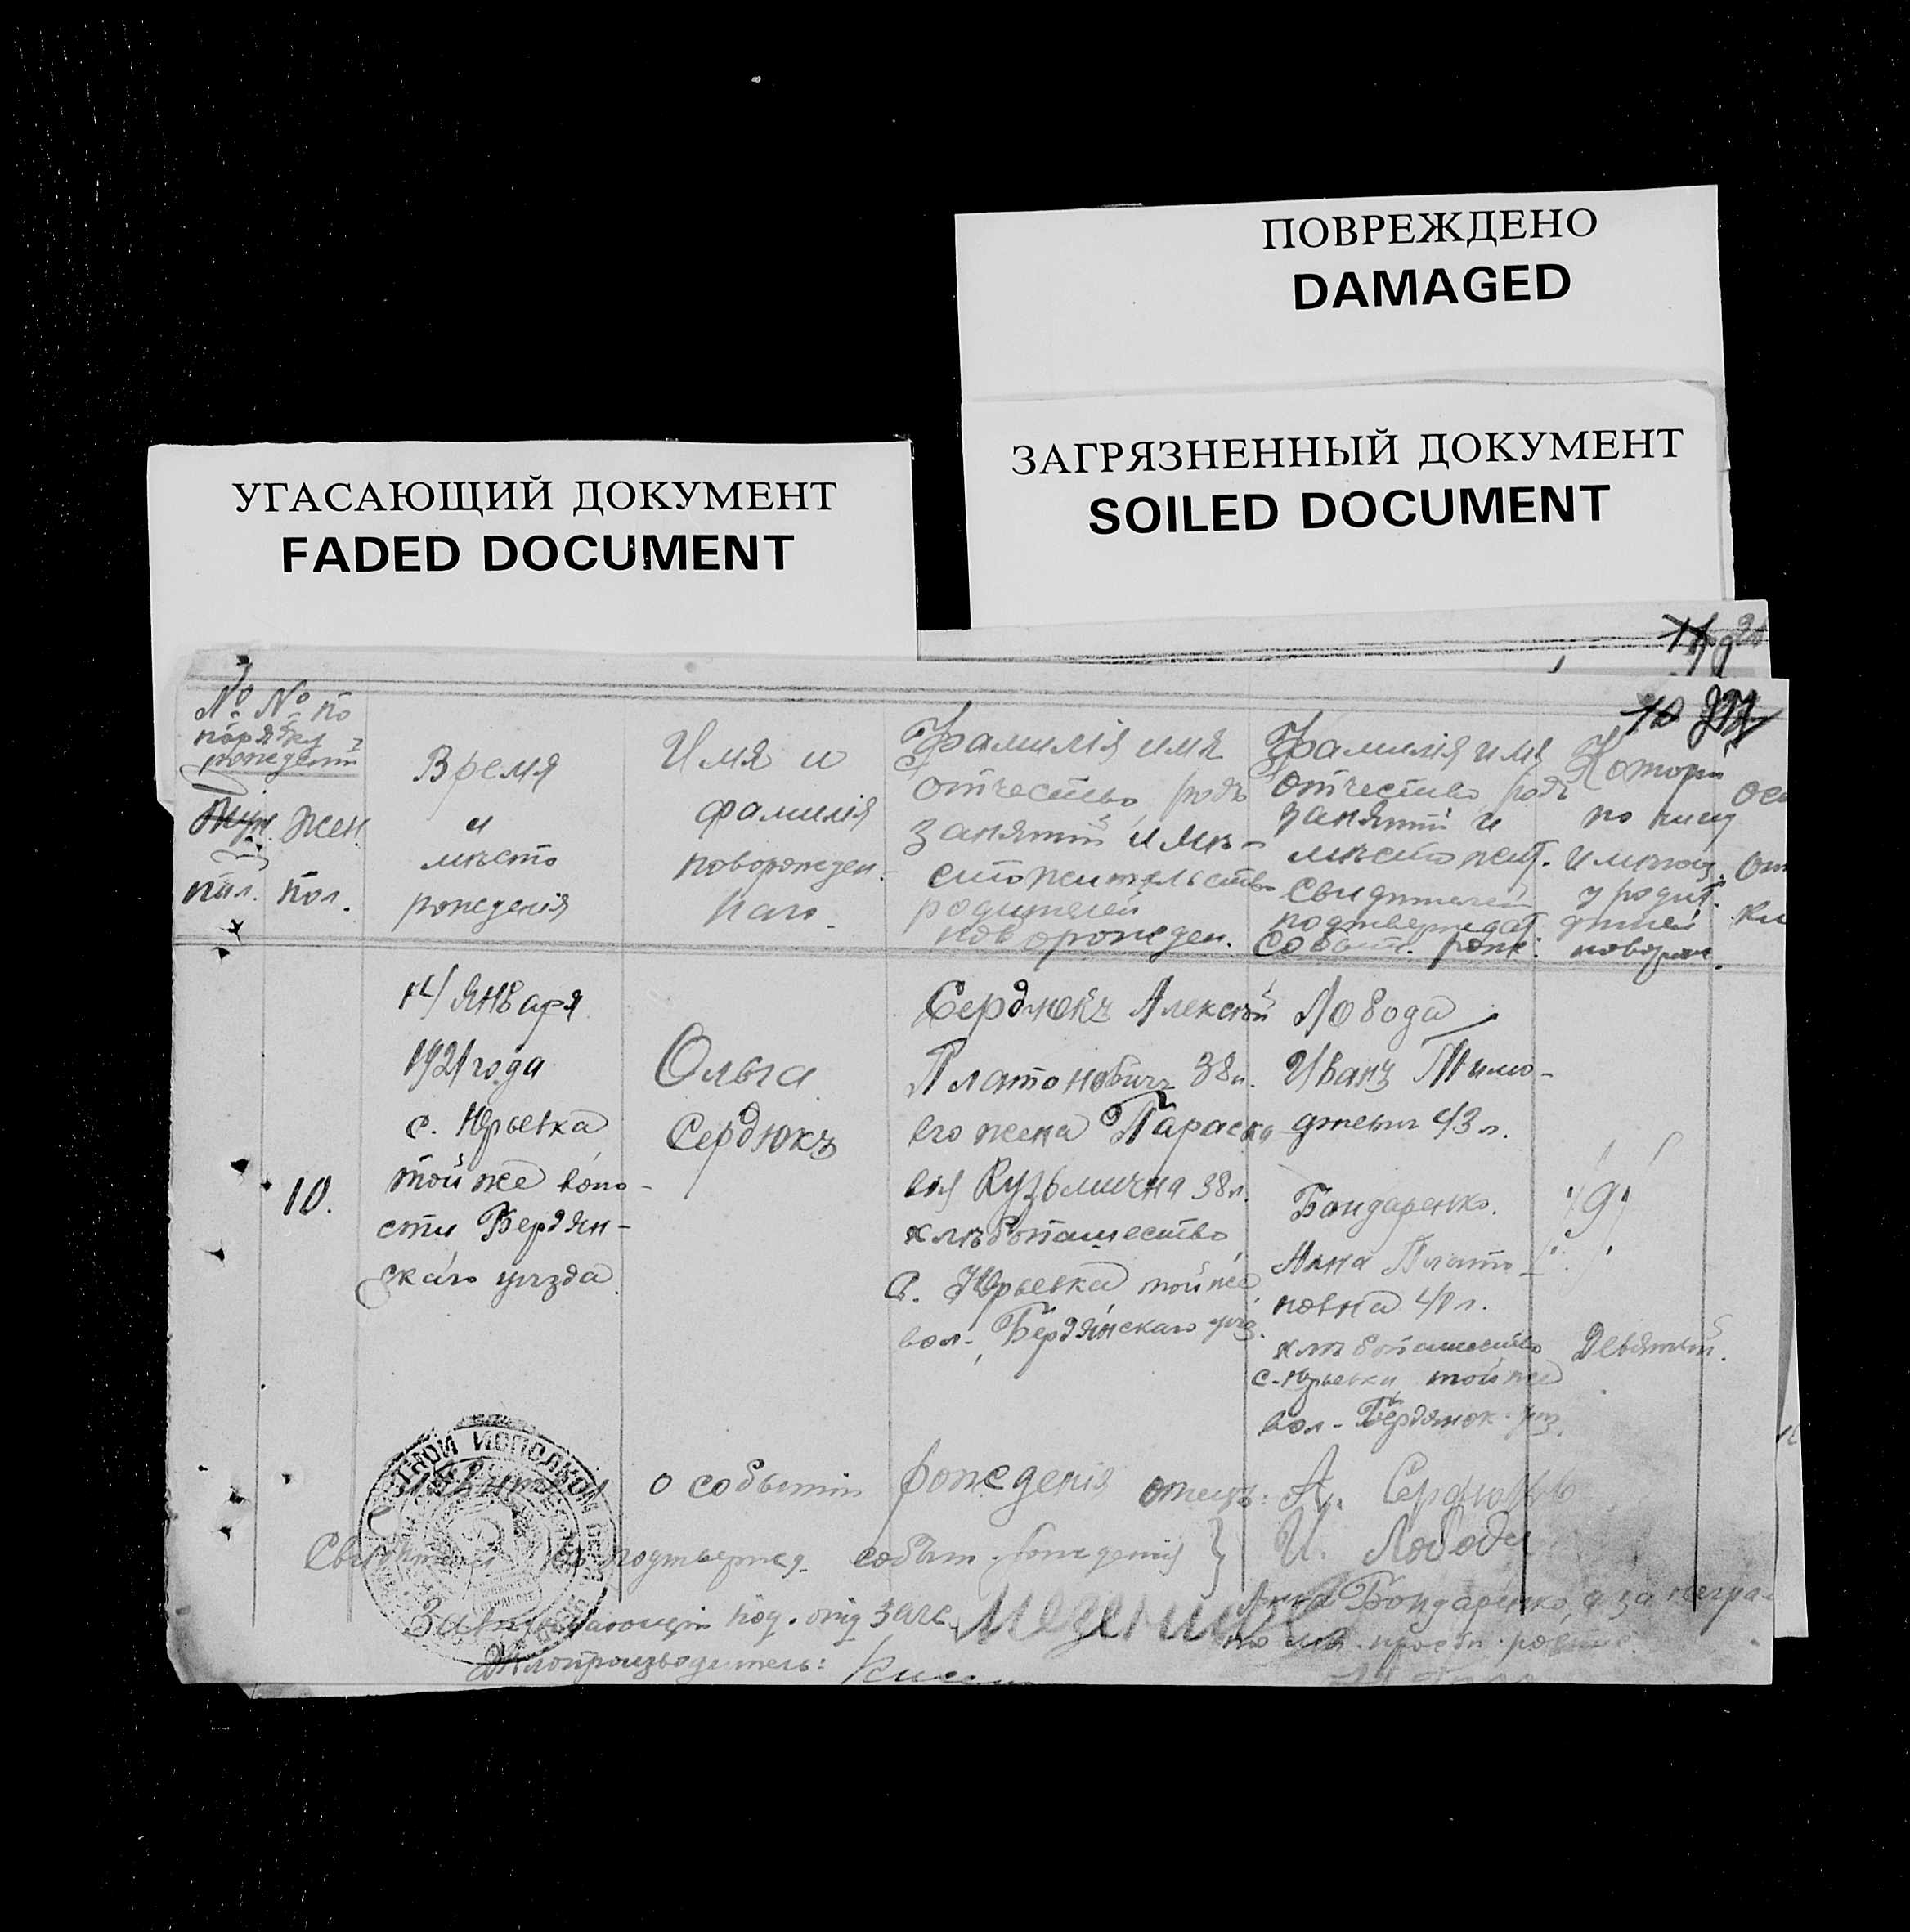 ПОВРЕЖДЕНО
DAMAGED
ЗАГРЯЗНЕННЫЙ ДОКУМЕНТ
SOILED DOCUMENT
УГАСАЮЩИЙ ДОКУМЕНТ
FADED DOCUMENT
№ № по
порядку
Муж. Жен.
пол. пол.
Время
и
мѣсто
рожденія
Имя и
фамилія
новорожден-
наго
Фамилія имя
отчество, родъ
занятій и мѣ-
стожительство
родителей
новорожден.
Фамилія имя
отчество родъ
занятій и
мѣстожит.
свидѣтелей
подтверждат.
событ. рож.
Которы
по числу
имѣющ.
у родит.
дѣтей
новорож.
10.
14 Января
1921 года
с. Юрьевка
той же воло-
сти Бердян-
скаго уѣзда
Ольга
Сердюкъ
Сердюкъ Алексѣй
Платоновичъ 38 л.
его жена Параске
вія Кузьмична 38 л.
хлѣбопашество
с. Юрьевка той же
вол., Бердянскаго уѣз.
Лобода
Иванъ Тимо-
фѣевич 43 л.
Бондаренко
Анна Плато-
новна 40 л.
хлѣбопашество
с. Юрьевки той же
вол. Бердянск. уѣз.
"9"
Девятый.
о событіи рожденія отецъ: А. Сердюкъ
подтвержд. событ. рожденія } И. Лобода
Анна Бондаренко, а за негра-
под. отд. загс
Дѣлопроизводитель: